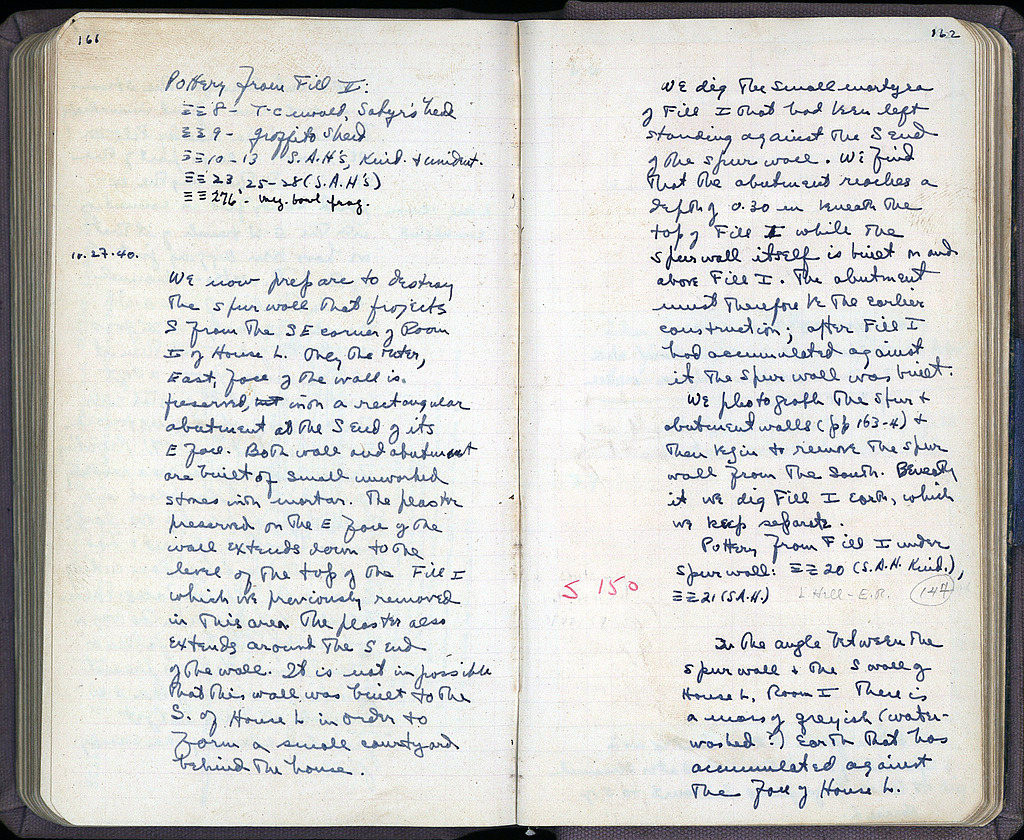 161
Pottery from Fill V:
ΞΞ 8 - T-C mould, Satyr's head
ΞΞ 9 - graffito sherd
ΞΞ 10-13 S.A.H's, Knid. & unident.
ΞΞ 23, 25-28 (S.A.H's)
ΞΞ 276 - Meg. bowl frag.
10.27.40.
We now prepare to destroy
the spur wall that projects
S from the SE corner of Room
I of House L. Only the outer,
East, face of the wall is
preserved, with a rectangular
abutment at the S end of its
E face. Both wall and abutment
are built of small unworked
stones with mortar. The plaster
preserved on the E face of the
wall extends down to the
level of the top of the Fill I
which we previously removed
in this area. The plaster also
extends around the S end
of the wall. It is not impossible
that this wall was built to the
S. of House L in order to
form a small courtyard
behind the house.
162
We dig the small martyra
of Fill I that had been left
standing against the S end
of the spur wall. We find
that the abutment reaches a
depth of 0.30 m beneath the
top of Fill I while the
spur wall itself is built on and
above Fill I. The abutment
must therefore be the earlier
construction; after Fill I
had accumulated against
it the spur wall was built.
We photograph the spur +
abutment walls (pp 163-4) +
then begin to remove the spur
wall from the south. Beneath
it we dig Fill I earth, which
we keep separate.
Pottery from Fill I under
spur wall: ΞΞ 20 (S.A.H. Knid.),
S 150
ΞΞ 21 (S.A.H.) L Hill - E.R. 144
In the angle between the
spur wall + the S wall of
House L, Room I there is
a mass of greyish (water-
washed?) earth that has
accumulated against
the face of House L.